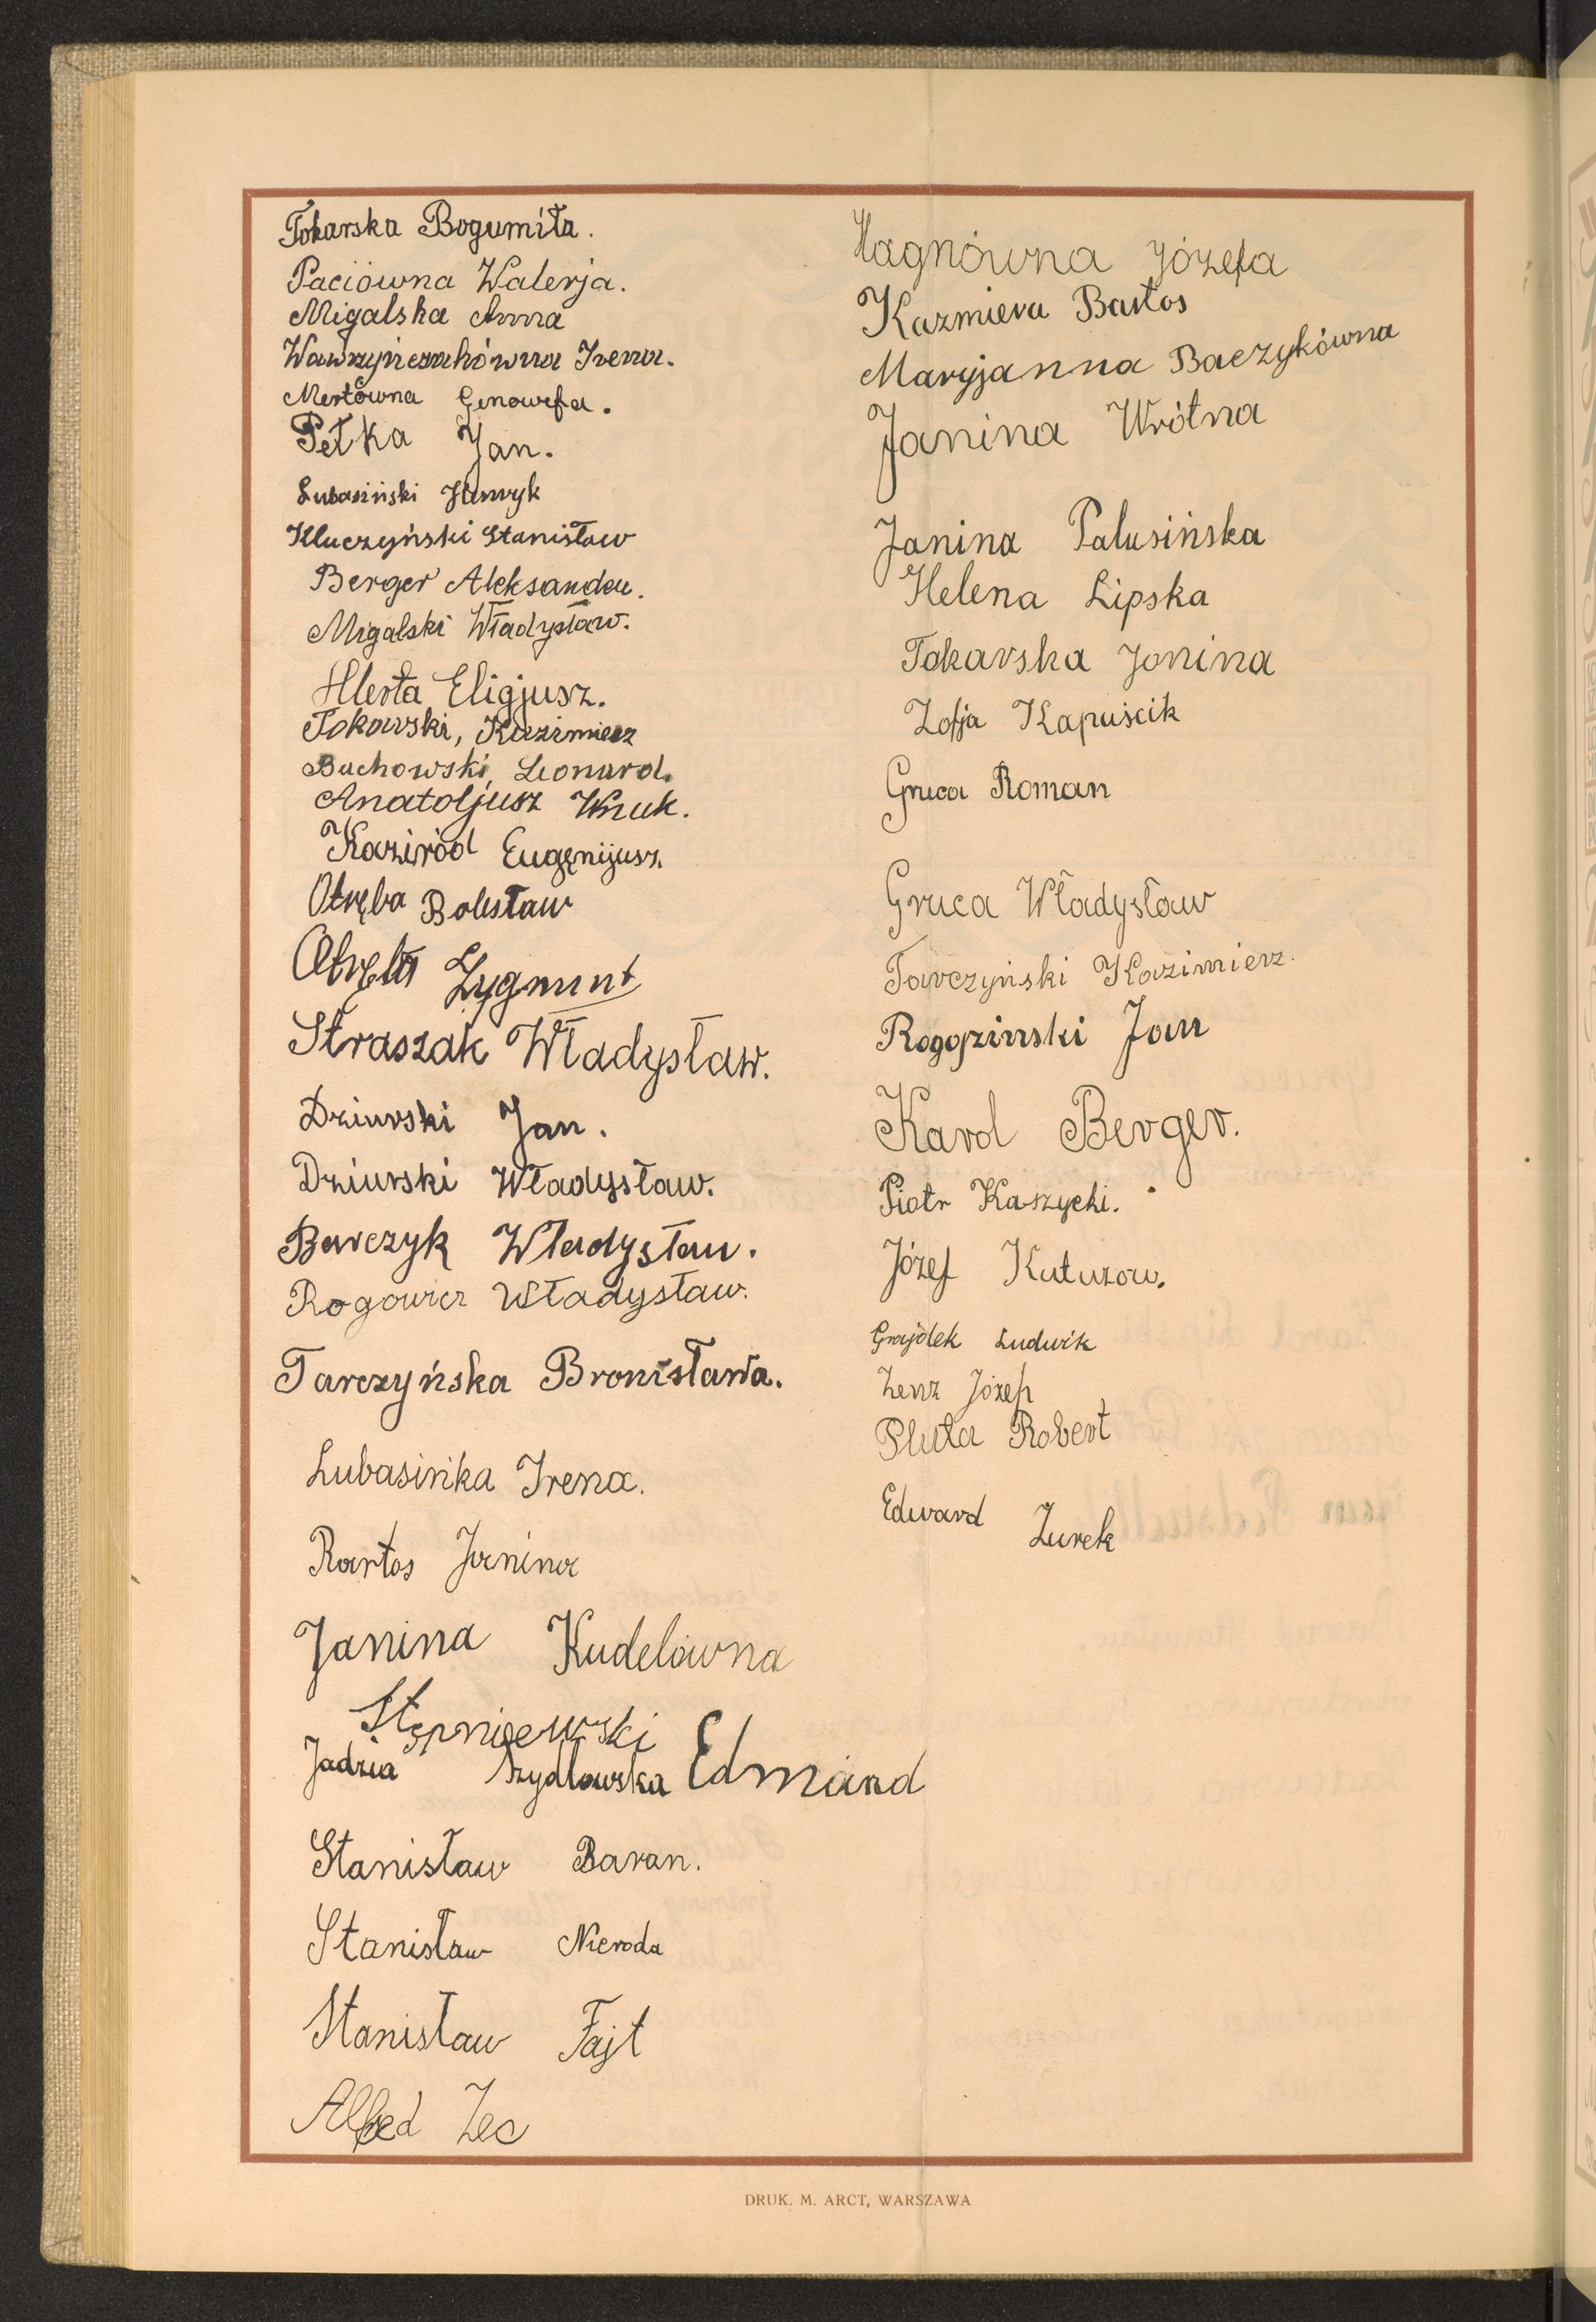 Tokarska Bogumiła.
Paciówna Walerja.
Migalska Anna
Wawrzyńczakówna Irena.
Mertówna Genowefa.
Petka Jan.
Lubasiński Henryk
Kluczyński Stanisław
Berger Aleksander.
Migalski Władysław.
Eligjusz.
Tokarski, Kazimierz
Buchowski, Leonard.
Anatoljusz Wnuk.
Kaziród Eugenijusz.
Otręba Bolesław
Otręba Zygmunt
Straszak Władysław.
Dziurski Jan.
Dziurski Władysław.
Barczyk Władysław.
Rogowicz Władysław.
Tarczyńska Bronisława.
Lubasińka Irena.
Bartos Janina
Janina Kudelówna
Stępniewski Edmund
Jadzia Szydłowska
Stanisław Baran.
Stanisław Nieroda
Stanisław Fajt
Alfred Lec
Hagnówna Józefa
Kazmiera Bartos
Maryjanna Baczykówna
Janina Wrótna
Janina Palusińska
Helena Lipska
Tokarska Janina
Zofja Kapuścik
Gruca Roman
Gruca Władysław
Tarczyński Kazimierz.
Rogozinski Jan
Karol Berger.
Piotr Kaszycki.
Józef Kutuzow.
Grajdek Ludwik
Lenz Józef
Pluta Robert
Edward Żurek
DRUK. M. ARCT, WARSZAWA